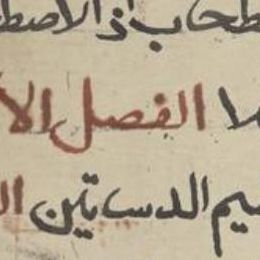 طحاب اذ الاصط
لا الفصل الا
سيم الدساتين ال